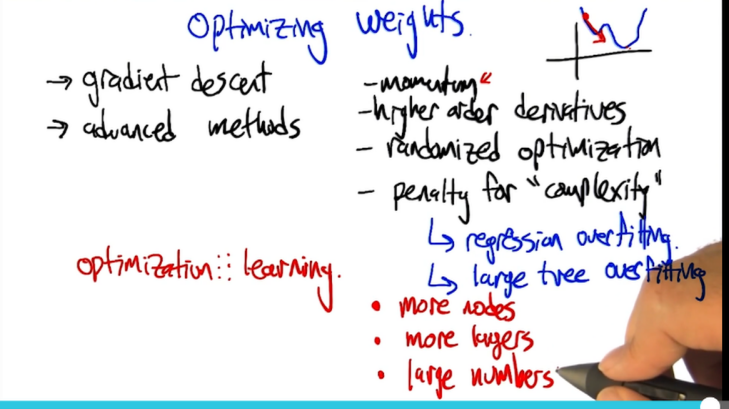 Optimizing weights.
→ gradient descent
→ advanced methods
- momentum
- higher order derivatives
- randomized optimization
- penalty for "complexity"
↳ regression overfitting.
↳ large tree overfitting
optimization :: learning.
• more nodes
• more layers
• large numbers